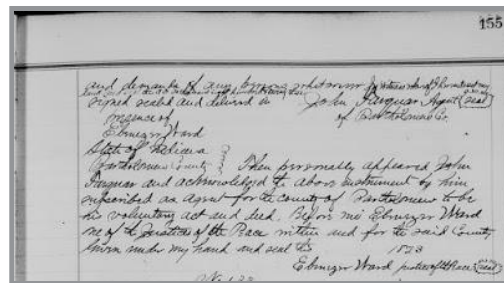 155
and demands of any person whatsoever In witness whereof I have hereunto set my
signed sealed and delivered in John Farquar Agent seal
presence of of Bartholomew Co.
Ebenezer Ward
State of Indiana
Bartholomew County Then personally appeared John
Farquar and acknowledged the above instrument by him
subscribed as Agent for the county of Bartholomew to be
his voluntary act and deed. Before me Ebenezer Ward
one of the Justices of the Peace within and for the said County
Given under my hand and seal this 1823
Ebenezer Ward justice of the Peace seal